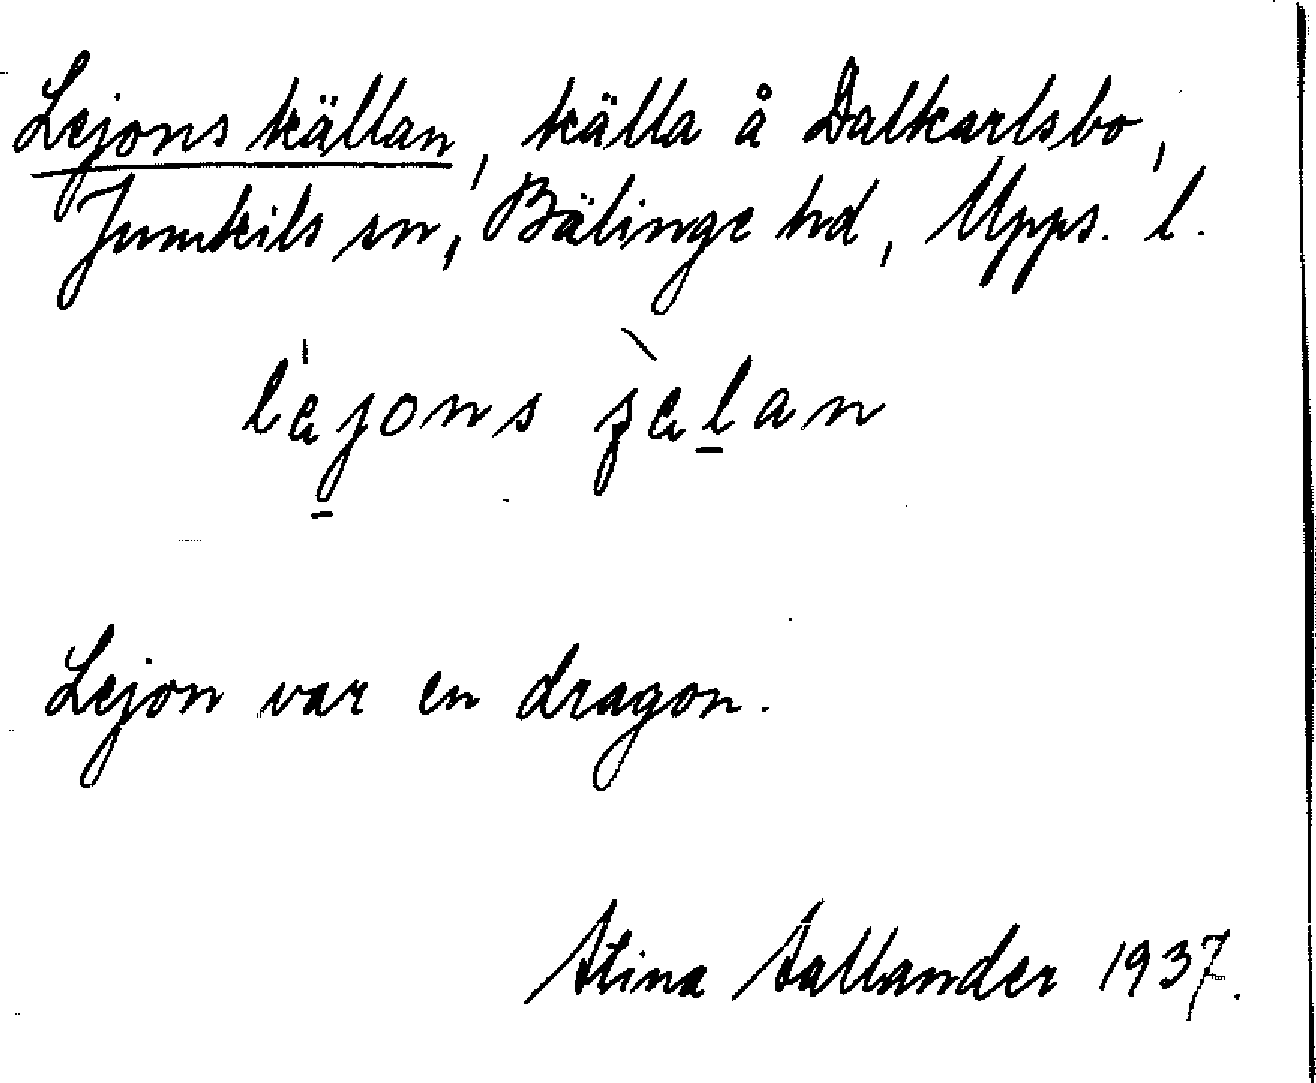 Lejonskällan, källa å Dalkarlsbo,
Jumkils sn, Bälinge hd, Upps. l.
Lejon var en dragon.
Stina Sallander 1937.